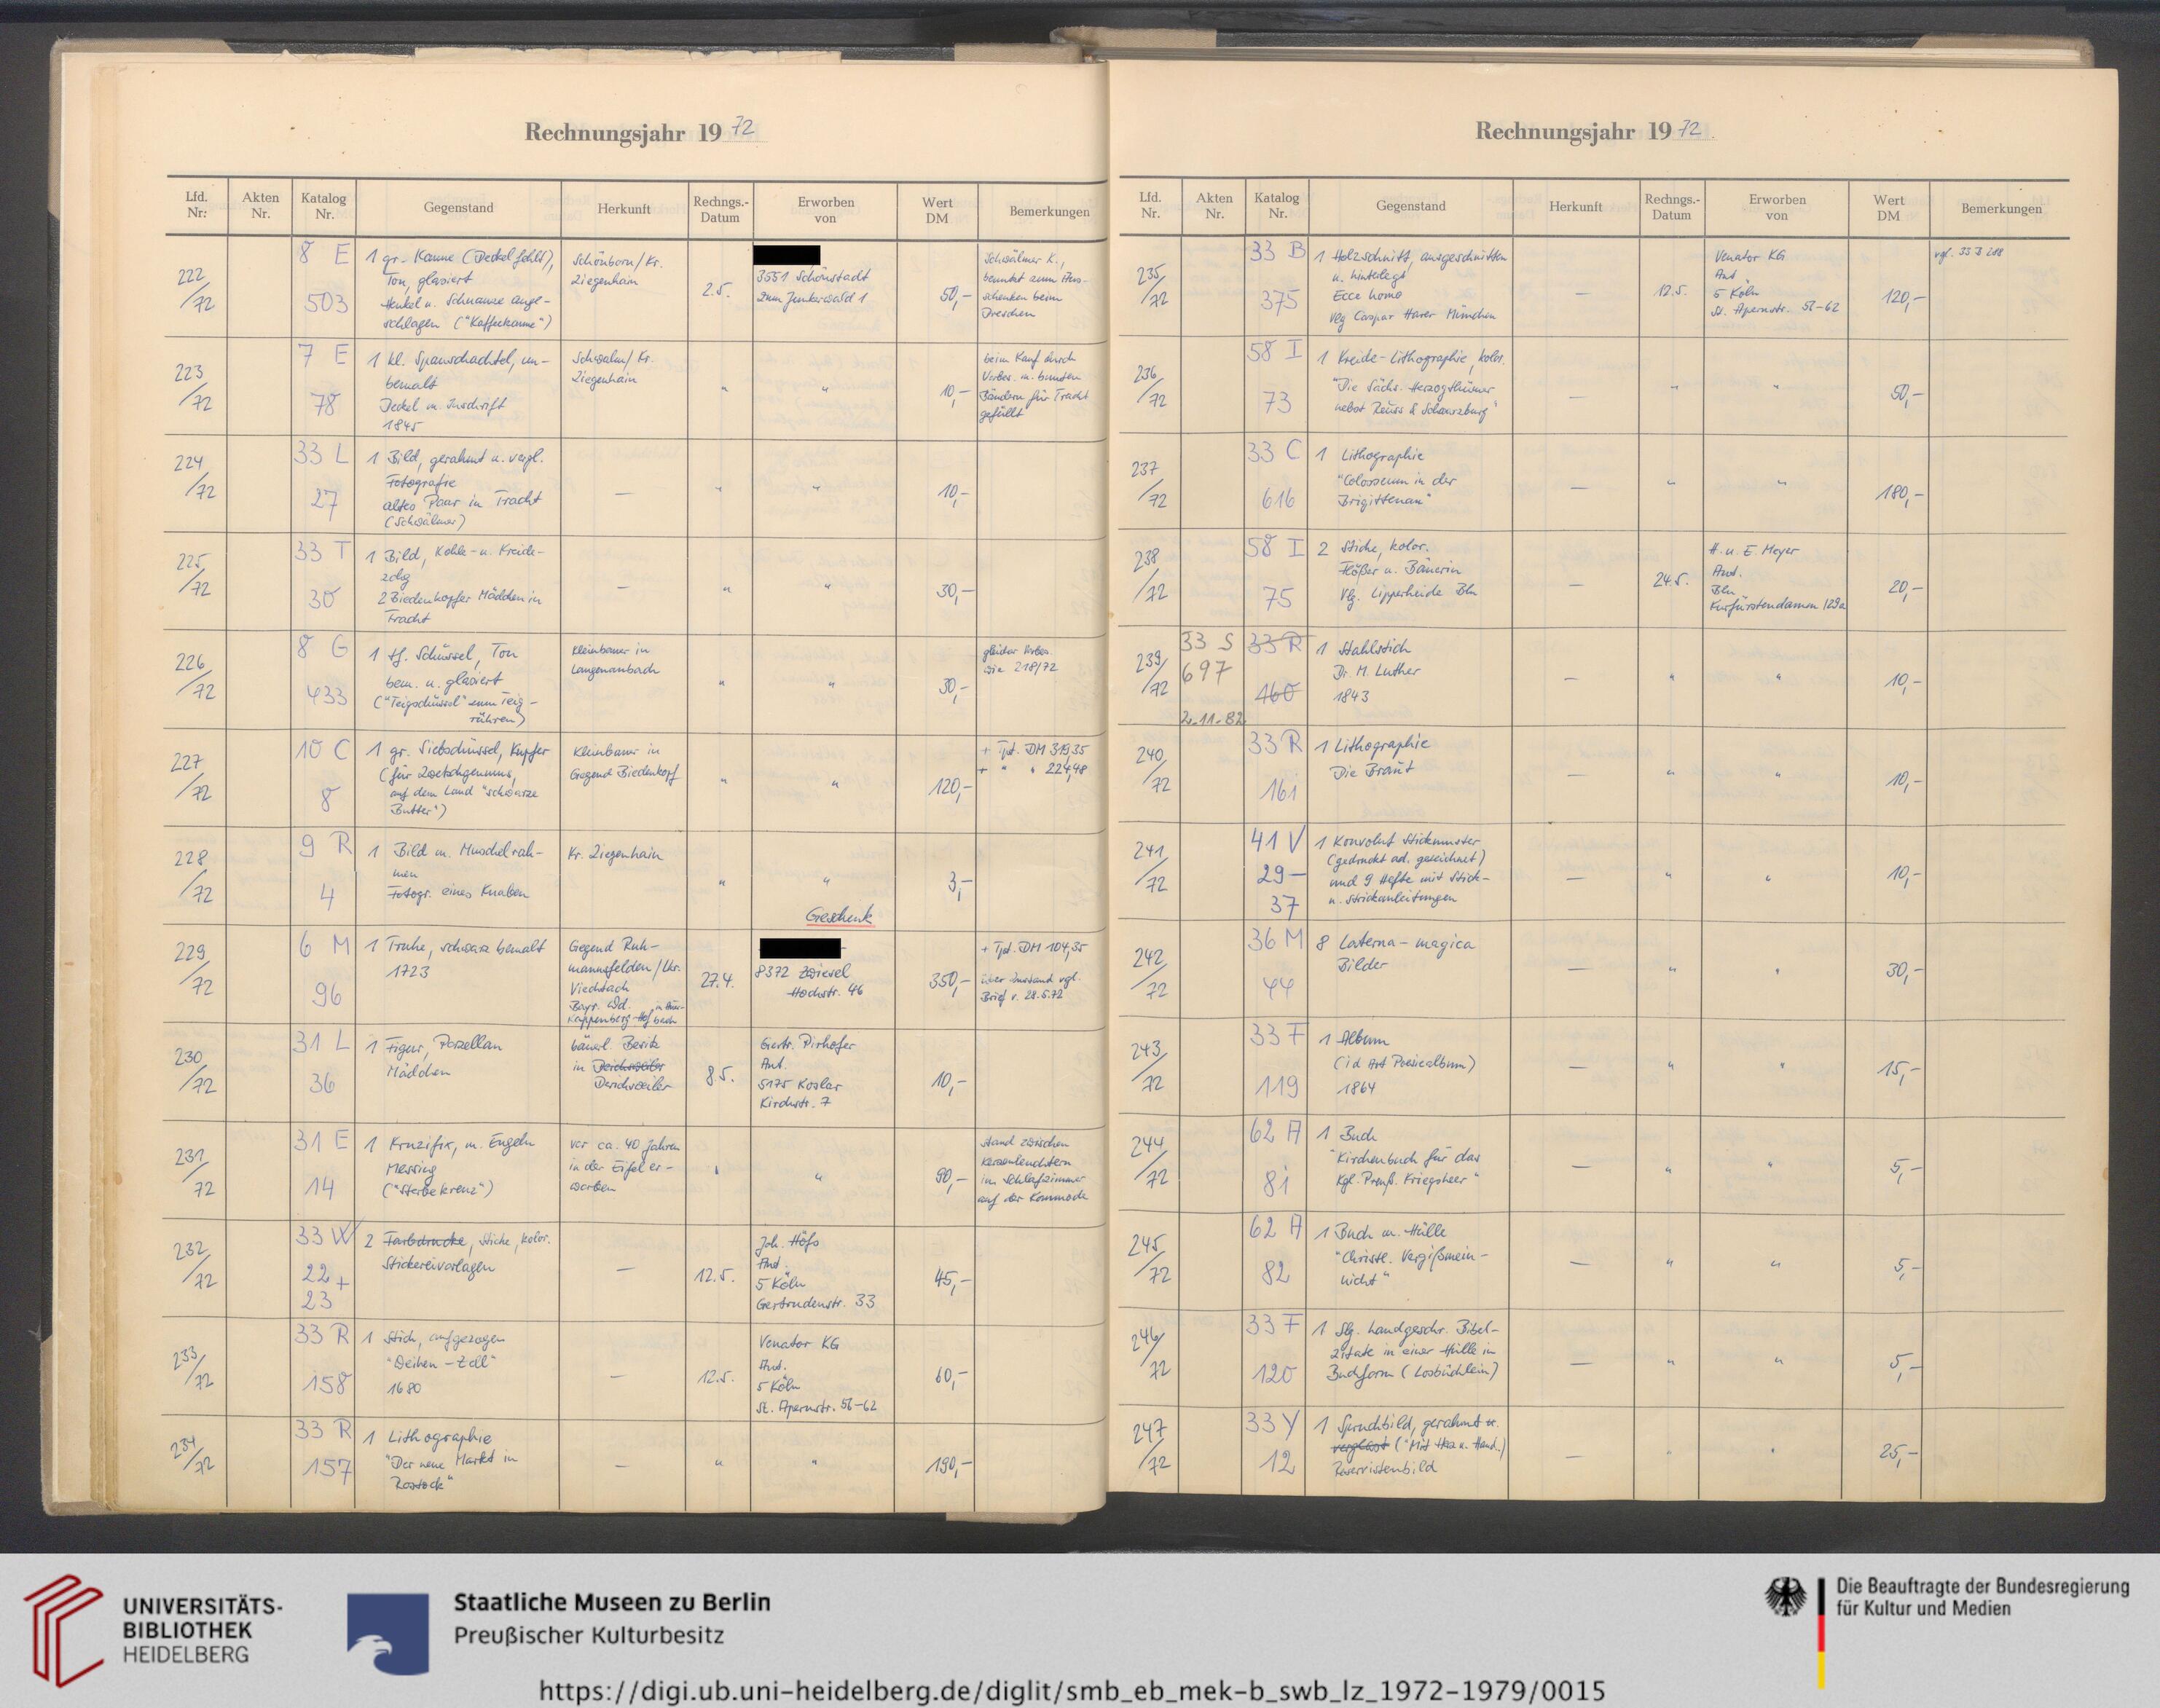 Rechnungsjahr 1972
Lfd. Nr: Akten Nr. Katalog Nr. Gegenstand Herkunft Rechngs.-Datum Erworben von Wert DM Bemerkungen
222/72
8 E
503
1 gr. Kanne (Deckel fehlt),
Ton, glasiert
Henkel u. Schnauze ange-
schlagen ("Kaffeekanne")
Schönborn/Kr.
Ziegenhain
2.5.
3551 Schönstadt
Zum Junkerwald 1
50,-
Schwälmer K.,
benutzt zum Aus-
schenken beim
Dreschen
223/72
7 E
78
1 kl. Spanschachtel, un-
bemalt
Deckel m. Inschrift
1845
Schwalm/Kr.
Ziegenhain
"
"
10,-
beim Kauf durch
Vorbes. m. bunten
Bändern für Tracht
gefüllt
224/72
33 L
27
1 Bild, gerahmt u. vergl.
Fotografie
altes Paar in Tracht
(Schwälmer)
—
"
"
10,-
225/72
33 T
30
1 Bild, Kohle- u. Kreide-
zchg
2 Biedenkopfer Mädchen in
Tracht
—
"
"
30,-
226/72
8 G
433
1 tf. Schüssel, Ton
bem. u. glasiert
("Teigschüssel" zum Teig-
rühren)
Kleinbauer in
"
"
30,-
gleicher Vorbes.
wie 218/72
227/72
10 C
8
1 gr. Siebschüssel, Kupfer
(für Zwetschgenmus,
auf dem Land "schwarze
Butter")
Kleinbauer in
Gegend Biedenkopf
"
"
120,-
+ Tpt. DM 319,35
+ " " 224,48
228/72
9 R
4
1 Bild m. Muschelrah-
men
Fotogr. eines Knaben
Kr. Ziegenhain
"
"
3,-
Geschenk
229/72
6 M
96
1 Truhe, schwarz bemalt
1723
Gegend Ruh-
mannsfelden/Lkr.
Viechtach
Bayr. Wd.
27.4.
8372 Zwiesel
Hochstr. 46
350,-
+ Tpt. DM 104,35
über Zustand vgl.
Brief v. 28.5.72
230/72
31 L
36
1 Figur, Porzellan
Mädchen
bäuerl. Besitz
in Derichsweiler
Derichsweiler
8.5.
Gertr. Pirhofer
Ant.
5175 Koslar
Kirchstr. 7
10,-
231/72
31 E
14
1 Kruzifix, m. Engeln
Messing
("Sterbekreuz")
vor ca. 40 Jahren
in der Eifel er-
worben
"
"
90,-
stand zwischen
Kerzenleuchtern
im Schlafzimmer
auf der Kommode
232/72
33 W
22+
23
2 Farbdrucke, Stiche, kolor.
Stickereivorlagen
—
12.5.
Joh. Höfs
Ant.
5 Köln
Gertrudenstr. 33
45,-
233/72
33 R
158
1 Stich, aufgezogen
"Weihen-Zell"
1680
—
12.5.
Venator KG
Ant.
5 Köln
St. Apernstr. 56-62
60,-
234/72
33 R
157
1 Lithographie
"Der neue Markt in
Rostock"
—
"
"
190,-
Rechnungsjahr 1972
Lfd. Nr. Akten Nr. Katalog Nr. Gegenstand Herkunft Rechngs.-Datum Erworben von Wert DM Bemerkungen
235/72
33 B
375
1 Holzschnitt, ausgeschnitten
u. hinterlegt
Ecce homo
Vlg Caspar Harer München
—
12.5.
Venator KG
Ant
5 Köln
St. Apernstr. 56-62
120,-
vgl. 33 B 268
236/72
58 I
73
1 Kreide-Lithographie, kolor.
"Die Sächs. Herzogthümer
nebst Reuss & Schwarzburg"
—
"
"
50,-
237/72
33 C
616
1 Lithographie
"Colosseum in der
Brigittenau"
—
"
"
180,-
238/72
58 I
75
2 Stiche, kolor.
Flößer u. Bäuerin
Vlg. Lipperheide Bln
—
24.5.
H. u. E. Meyer
Ant.
Bln
Kurfürstendamm 129a
20,-
239/72
33 S
697
2.11.82
33 R
160
1 Stahlstich
Dr. M. Luther
1843
—
"
"
10,-
240/72
33 R
161
1 Lithographie
Die Braut
—
"
"
10,-
241/72
41 V
29-
37
1 Konvolut Stickmuster
(gedruckt od. gezeichnet)
und 9 Hefte mit Stick-
u. Strickanleitungen
—
"
"
10,-
242/72
36 M
44
8 Laterna-magica
Bilder
—
"
"
30,-
243/72
33 F
119
1 Album
(i d Art Poesiealbum)
1864
—
"
"
15,-
244/72
62 A
81
1 Buch
"Kirchenbuch für das
Kgl. Preuß. Kriegsheer"
—
"
"
5,-
245/72
62 A
82
1 Buch m. Hülle
"Christl. Vergißmein-
nicht"
—
"
"
5,-
246/72
33 F
120
1 Slg. handgeschr. Bibel-
zitate in einer Hülle in
Buchform (Losbüchlein)
—
"
"
5,-
247/72
33 Y
12
1 Spruchbild, gerahmt u.
verglast ("Mit Herz u. Hand.)
Reservistenbild
—
"
"
25,-
UNIVERSITÄTS-
BIBLIOTHEK
HEIDELBERG
Staatliche Museen zu Berlin
Preußischer Kulturbesitz
Die Beauftragte der Bundesregierung
für Kultur und Medien
https://digi.ub.uni-heidelberg.de/diglit/smb_eb_mek-b_swb_lz_1972-1979/0015